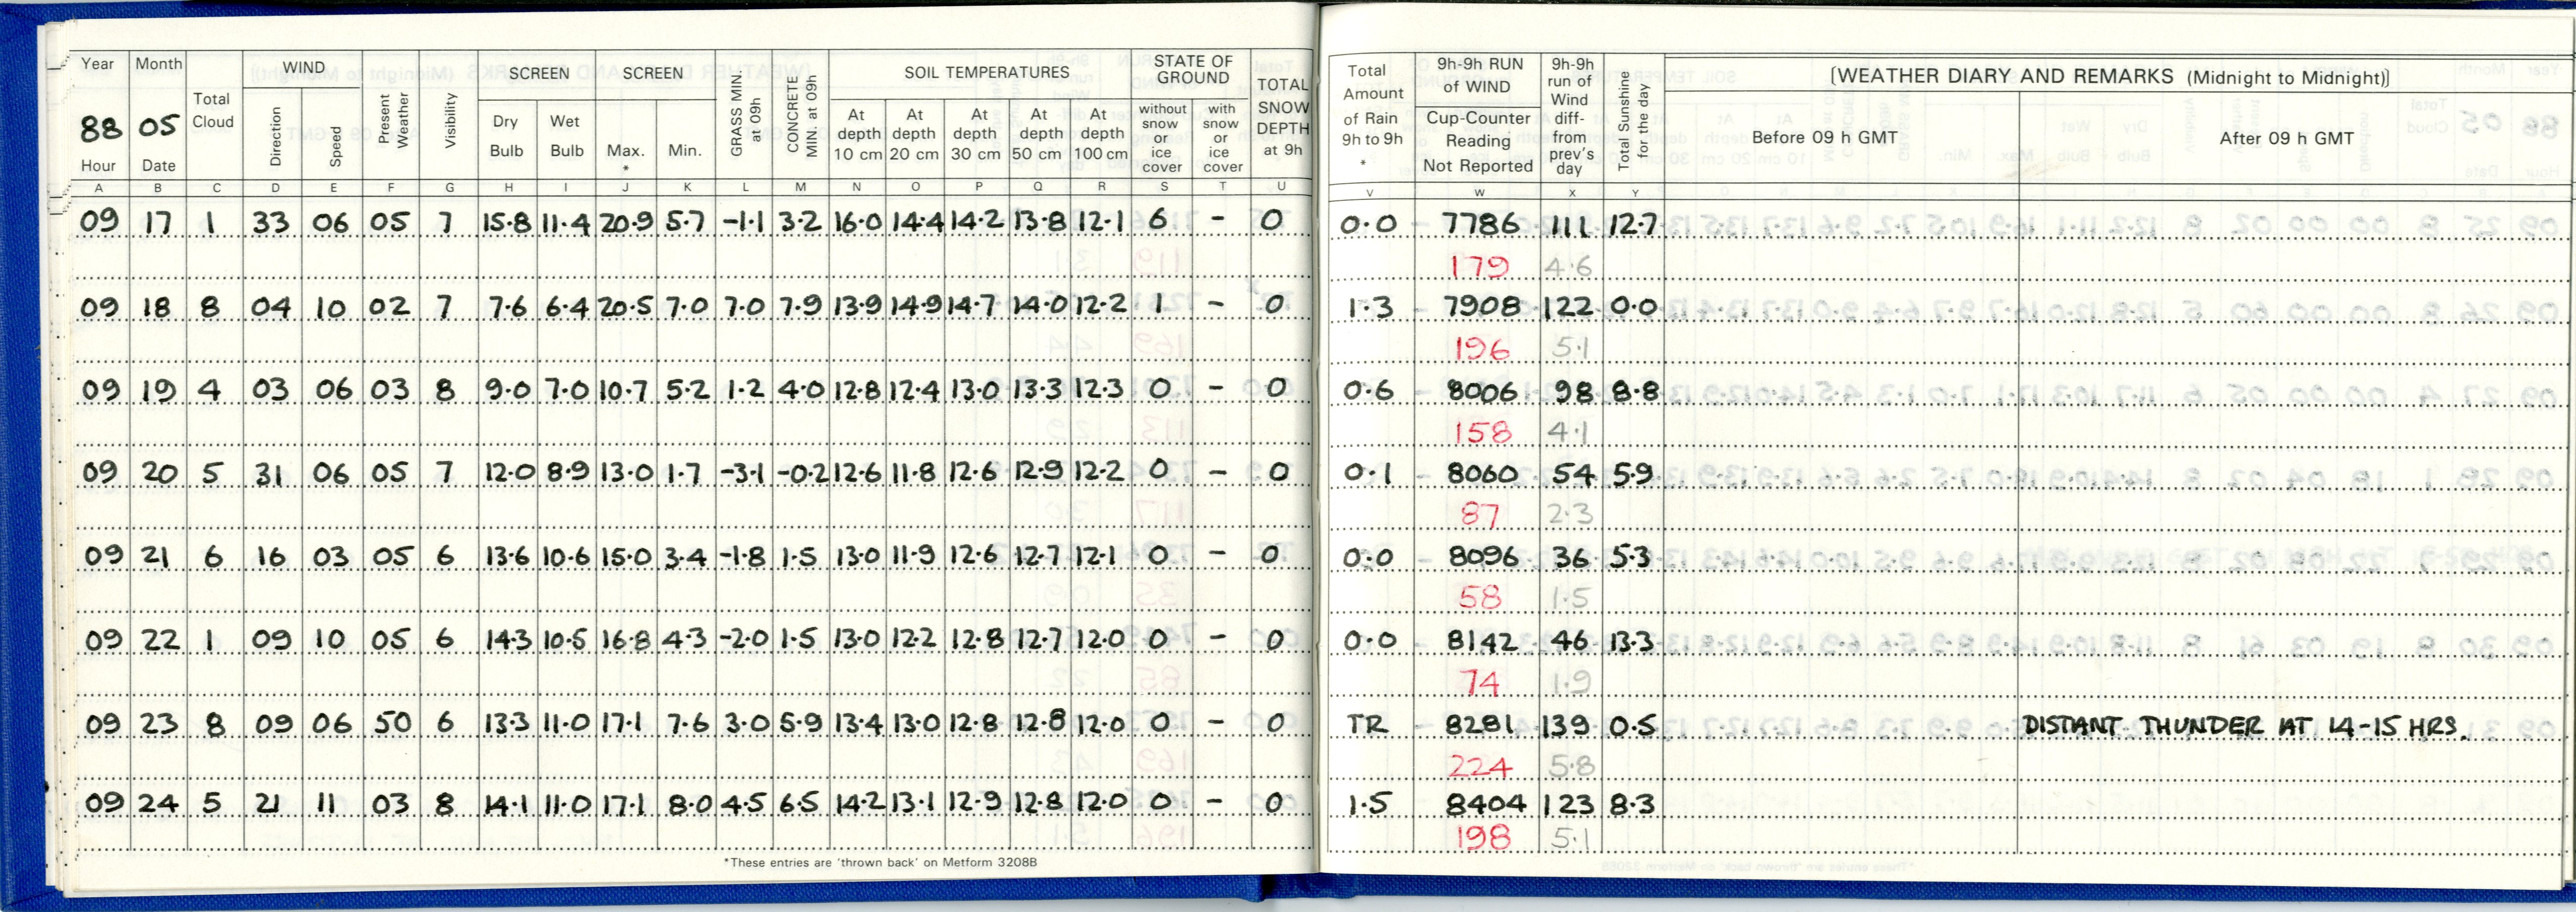 Year Month Total Cloud WIND Present Weather Visibility SCREEN SCREEN GRASS MIN. at 09h CONCRETE MIN. at 09h SOIL TEMPERATURES STATE OF GROUND TOTAL SNOW DEPTH at 9h
88 05 Direction Speed Dry Bulb Wet Bulb Max. * Min. At depth 10 cm At depth 20 cm At depth 30 cm At depth 50 cm At depth 100 cm without snow or ice cover with snow or ice cover
Hour Date
A B C D E F G H I J K L M N O P Q R S T U
09 17 1 33 06 05 7 15.8 11.4 20.9 5.7 -1.1 3.2 16.0 14.4 14.2 13.8 12.1 6 - 0
09 18 8 04 10 02 7 7.6 6.4 20.5 7.0 7.0 7.9 13.9 14.9 14.7 14.0 12.2 1 - 0
09 19 4 03 06 03 8 9.0 7.0 10.7 5.2 1.2 4.0 12.8 12.4 13.0 13.3 12.3 0 - 0
09 20 5 31 06 05 7 12.0 8.9 13.0 1.7 -3.1 -0.2 12.6 11.8 12.6 12.9 12.2 0 - 0
09 21 6 16 03 05 6 13.6 10.6 15.0 3.4 -1.8 1.5 13.0 11.9 12.6 12.7 12.1 0 - 0
09 22 1 09 10 05 6 14.3 10.5 16.8 4.3 -2.0 1.5 13.0 12.2 12.8 12.7 12.0 0 - 0
09 23 8 09 06 50 6 13.3 11.0 17.1 7.6 3.0 5.9 13.4 13.0 12.8 12.8 12.0 0 - 0
09 24 5 21 11 03 8 14.1 11.0 17.1 8.0 4.5 6.5 14.2 13.1 12.9 12.8 12.0 0 - 0
*These entries are 'thrown back' on Metform 3208B
Total Amount of Rain 9h to 9h * 9h-9h RUN of WIND Cup-Counter Reading Not Reported 9h-9h run of Wind diff- from prev's day Total Sunshine for the day [WEATHER DIARY AND REMARKS (Midnight to Midnight)]
Before 09 h GMT After 09 h GMT
V W X Y
0.0 7786 111 12.7
179 4.6
1.3 7908 122 0.0
196 5.1
0.6 8006 98 8.8
158 4.1
0.1 8060 54 5.9
87 2.3
0.0 8096 36 5.3
58 1.5
0.0 8142 46 13.3
74 1.9
TR 8281 139 0.5 DISTANT THUNDER AT 14-15 HRS.
224 5.8
1.5 8404 123 8.3
198 5.1